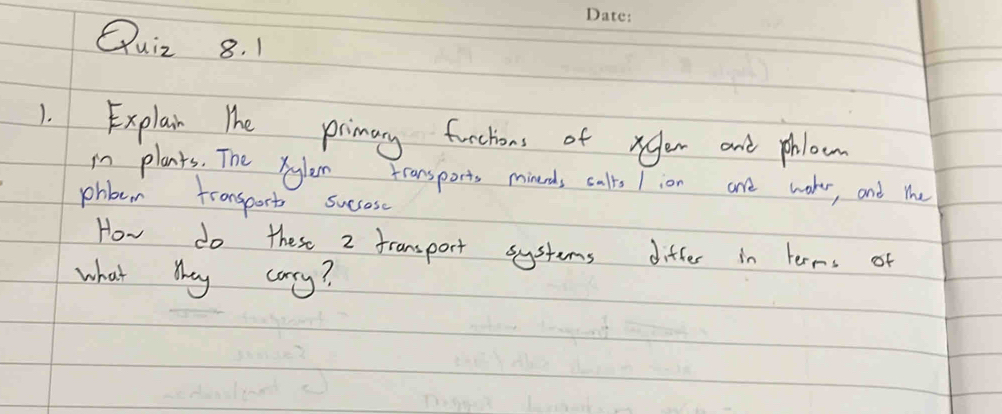 Date:
Quiz 8.1
1. Explain the primary functions of xylem and phloem
in plants. The xylem transports minerals salts / ion and water, and the
phloem transports sucrose
How do these 2 transport systems differ in terms of
what they carry?